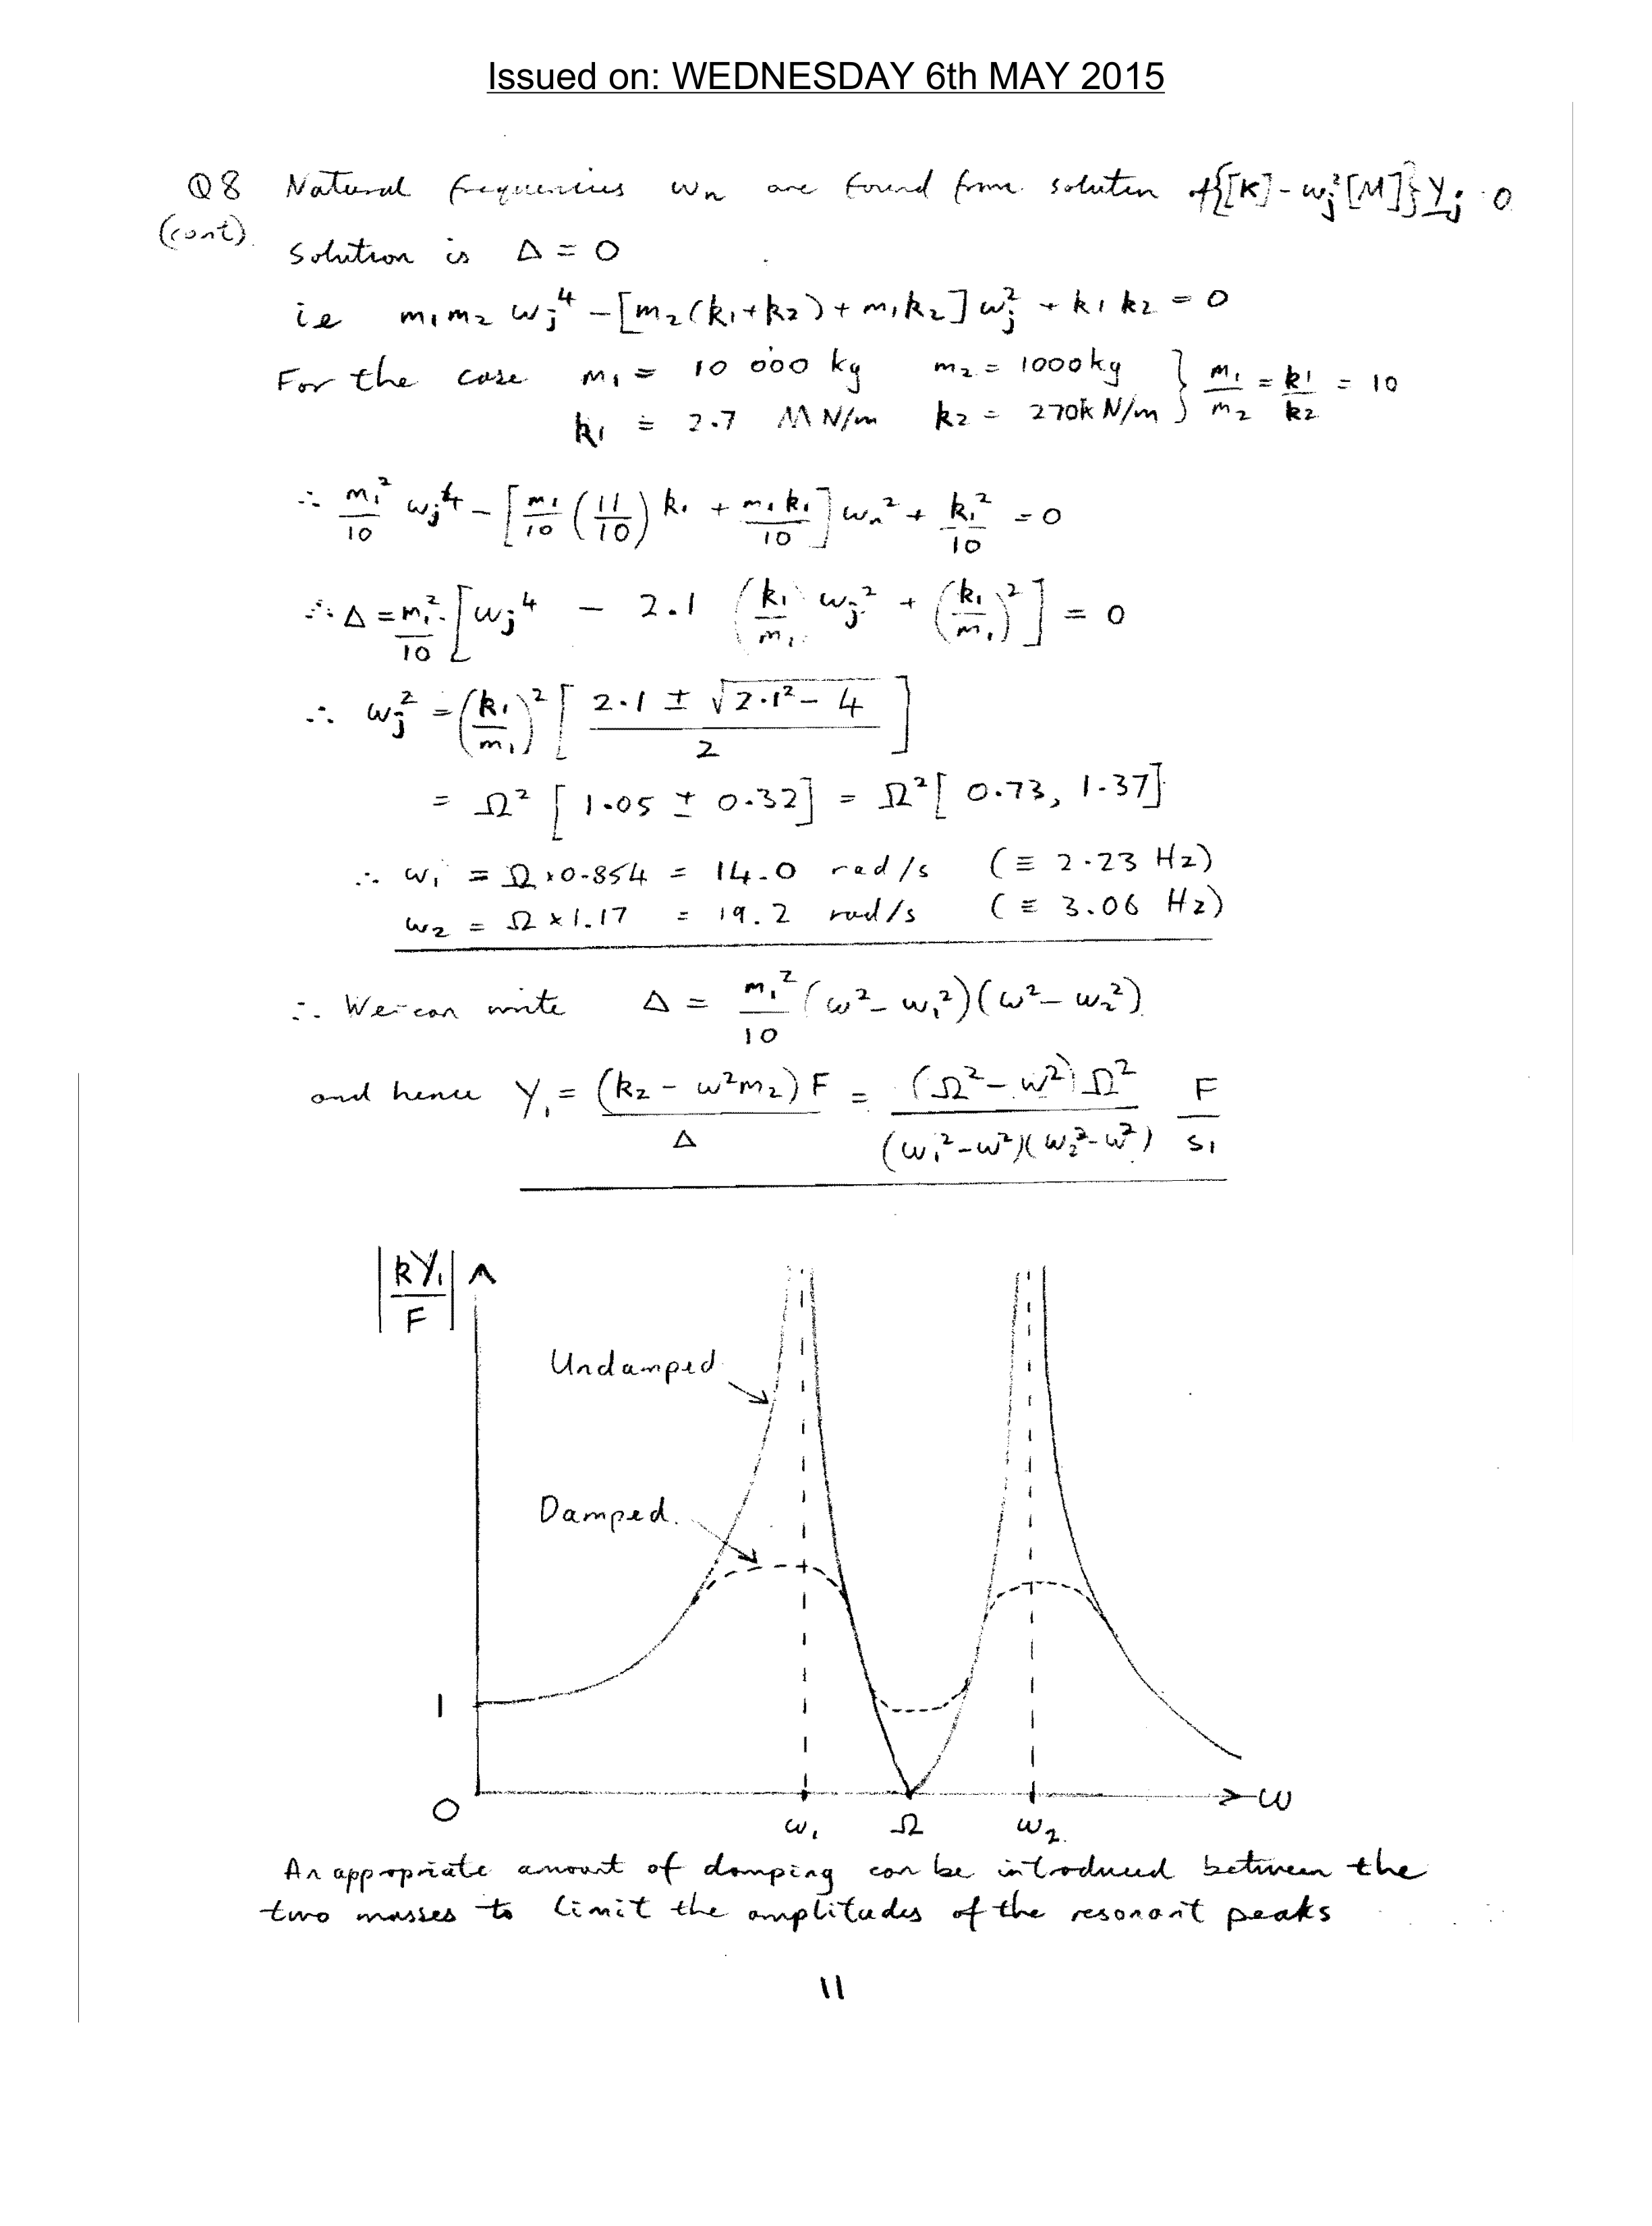 Issued on: WEDNESDAY 6th MAY 2015
Q8 Natural frequencies ωn are found from solution of {[K] - ωj²[M]} Yj = 0
(cont).
Solution is Δ = 0
ie m₁m₂ ωj⁴ - [m₂(k₁+k₂) + m₁k₂] ωj² + k₁k₂ = 0
For the case m₁ = 10 000 kg m₂ = 1000kg } m₁/m₂ = k₁/k₂ = 10
k₁ = 2.7 MN/m k₂ = 270kN/m
∴ m₁²/10 ωj⁴ - [m₁/10 (11/10) k₁ + m₁k₁/10] ωn² + k₁²/10 = 0
∴ Δ = m₁²/10 [ωj⁴ - 2.1 (k₁/m₁) ωj² + (k₁/m₁)²] = 0
∴ ωj² = (k₁/m₁)² [(2.1 ± √(2.1² - 4))/2]
= Ω² [1.05 ± 0.32] = Ω² [0.73, 1.37]
∴ ω₁ = Ω × 0.854 = 14.0 rad/s (≡ 2.23 Hz)
ω₂ = Ω × 1.17 = 19.2 rad/s (≡ 3.06 Hz)
∴ We can write Δ = m₁²/10 (ω² - ω₁²)(ω² - ω₂²)
and hence Y₁ = (k₂ - ω²m₂) F/Δ = (Ω² - ω²) Ω²/((ω₁² - ω²)(ω₂² - ω²)) F/s₁
|kY₁/F|
Undamped
Damped.
1
0
ω₁ Ω ω₂ ω
An appropriate amount of damping can be introduced between the
two masses to limit the amplitudes of the resonant peaks
11